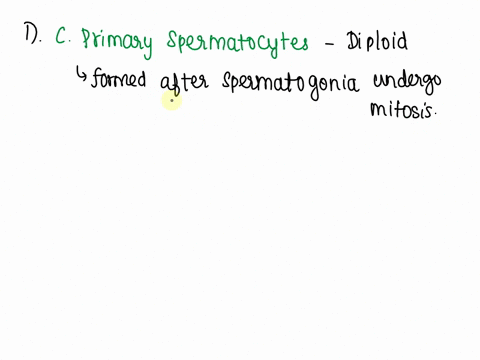 1). C. Primary Spermatocytes – Diploid
↳ formed after spermatogonia undergo
mitosis.